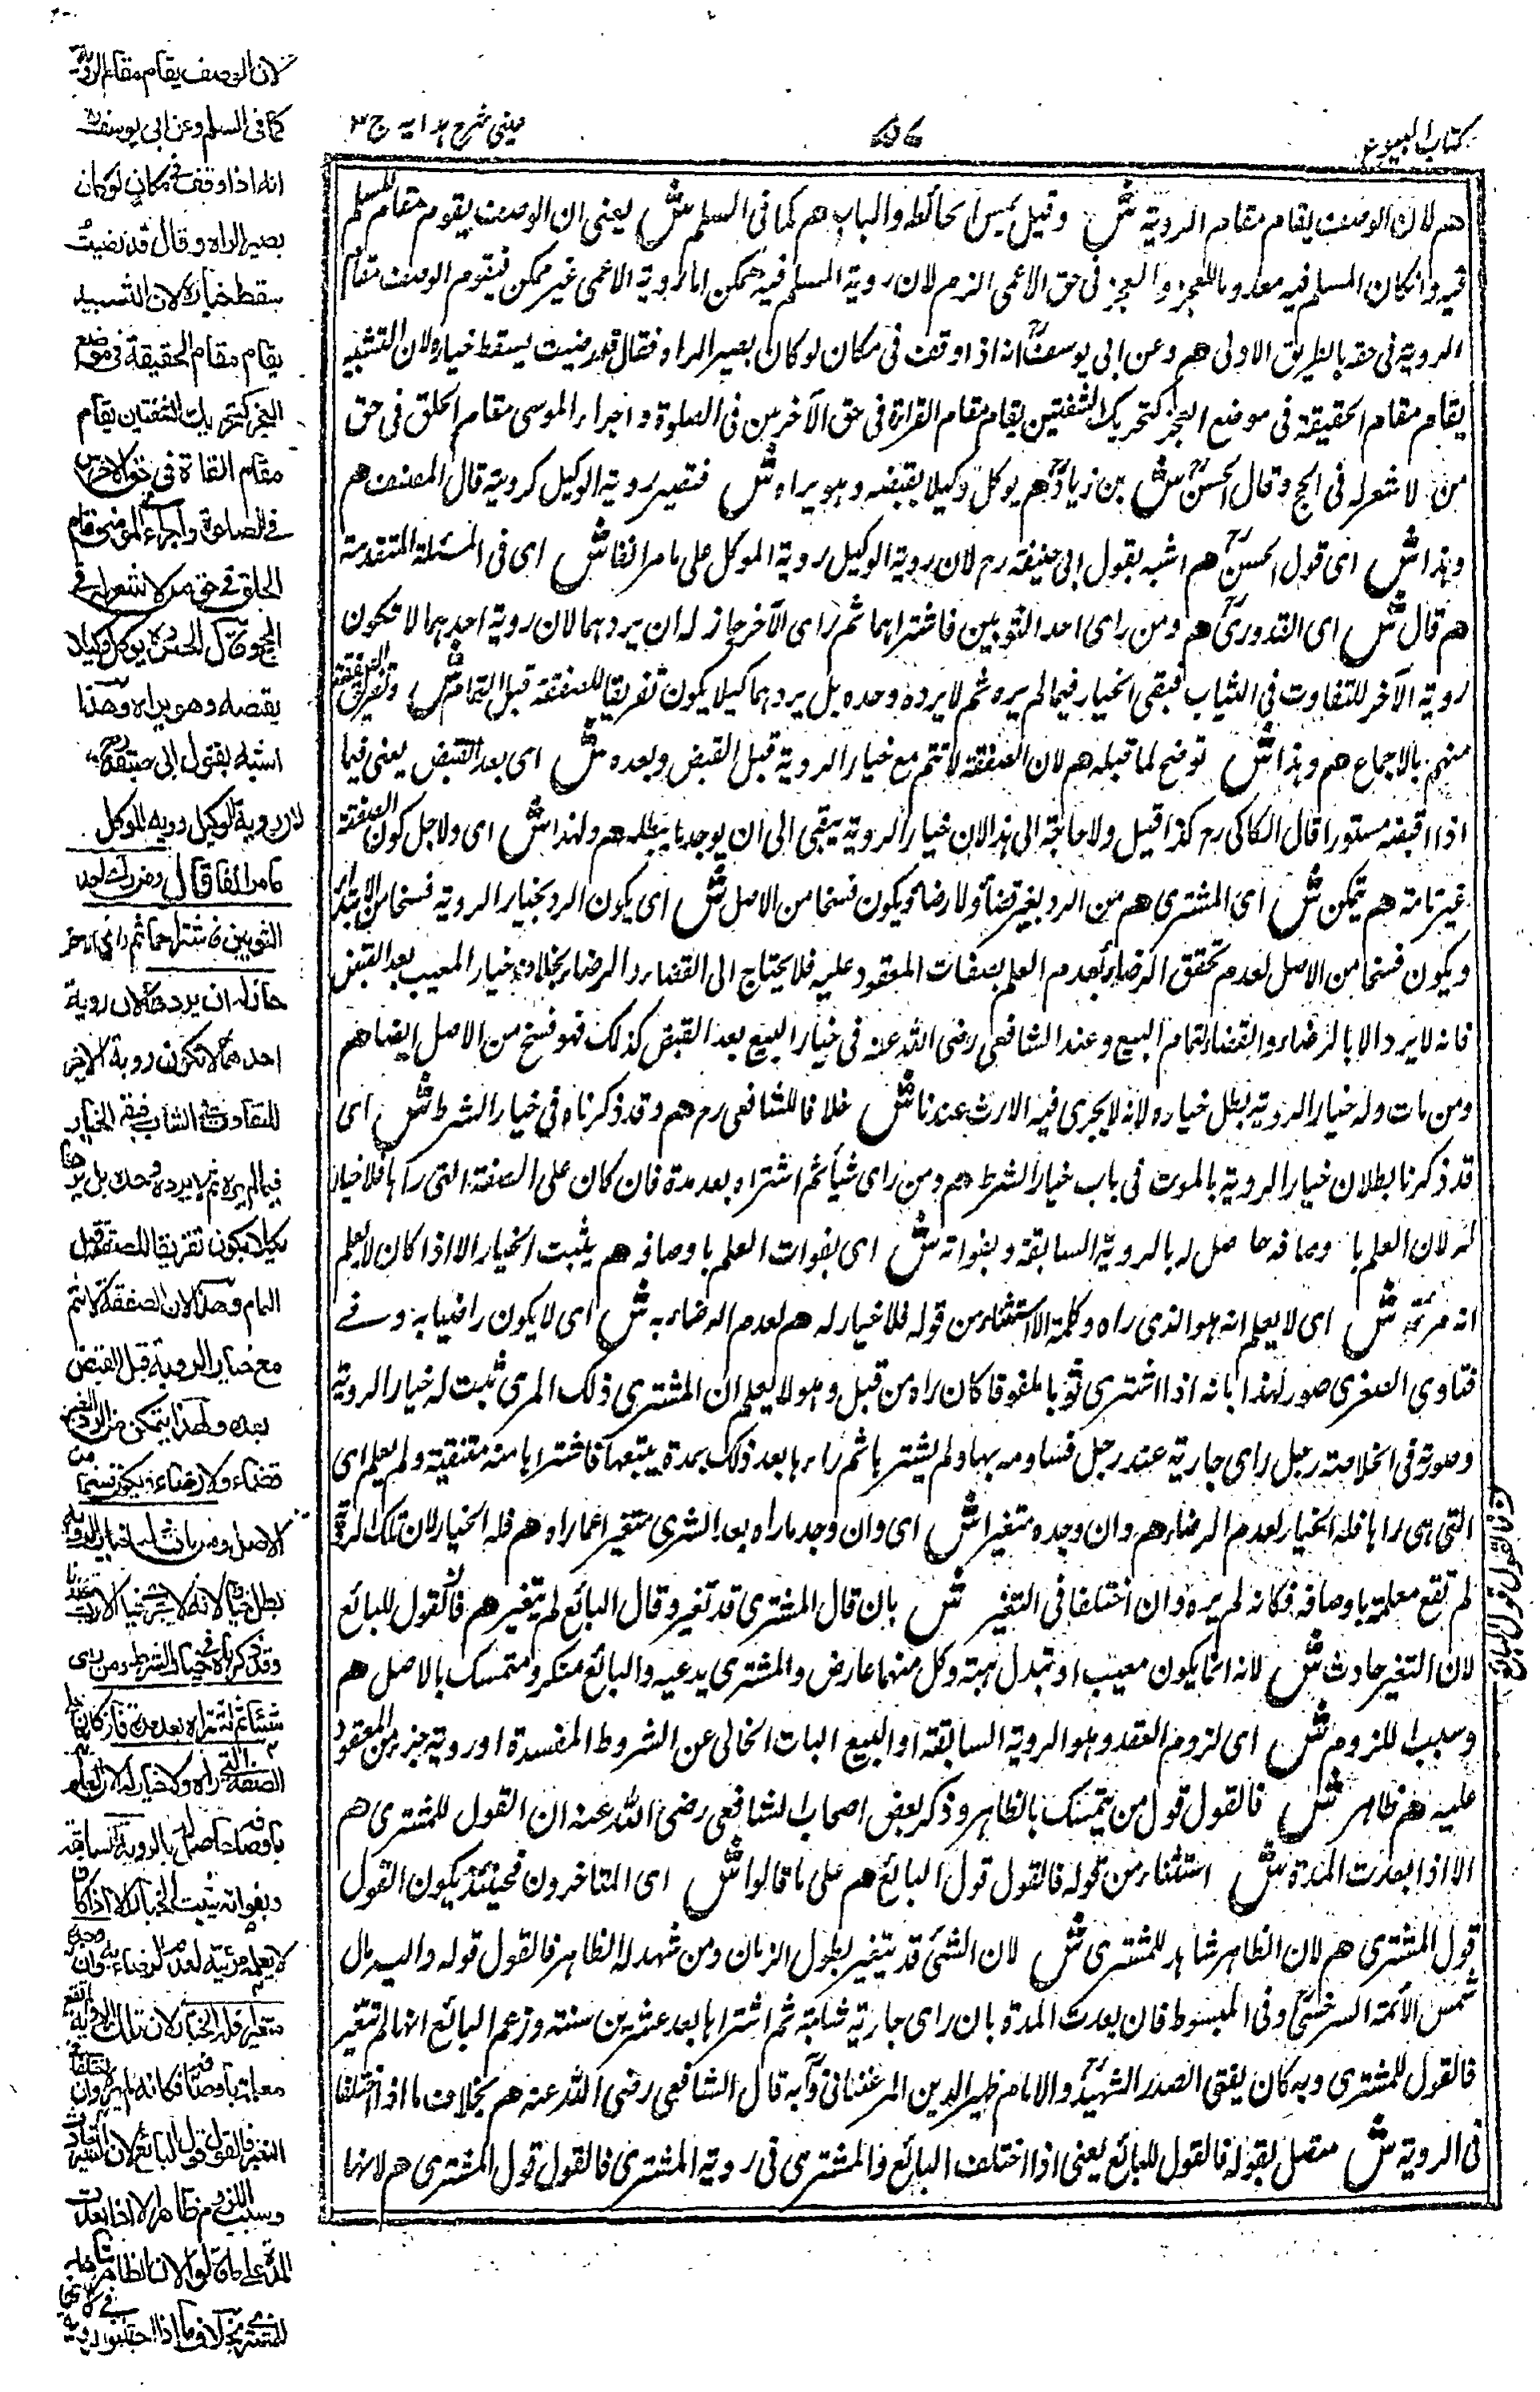 كتاب البيوع
عينى شرح هدايه ج ٣
هم لان الوصف يقام مقام الروية ش وقيل يمس الحائط والباب هم كما فى السلم ش يعنى ان الوصف يقوم مقام المسلم
فيه وان كان المسلم فيه معدوما للعجز والعجز فى حق الاعمى الزم لان روية المسلم فيه ممكن اما روية الاعمى غير ممكن فيقوم الوصف مقام
الروية فى حقه بالطريق الاولى هم وعن ابى يوسف انه اذا وقف فى مكان لو كان بصيرا لراه فقال قد رضيت يسقط خياره لان التشبيه
يقام مقام الحقيقة فى موضع العجز كتحريك الشفتين يقام مقام القراة فى حق الآخرس فى الصلوة واجراء الموسى مقام الحلق فى حق
من لا شعر له فى الحج وقال الحسن ش بن زياد هم يوكل وكيلا بقبضه وهو يراه ش فتصير روية الوكيل كرويته قال المصنف هم
وهذا ش اى قول الحسن هم اشبه بقول ابى حنيفة رح لان روية الوكيل روية الموكل على ما مر انفا ش اى فى المسئلة المتقدمة
هم قال ش اى القدورى هم ومن راى احد الثوبين فاشتراهما ثم راى الآخر جاز له ان يردهما لان روية احدهما لا تكون
روية الآخر للتفاوت فى الثياب فبقى الخيار فيما لم يره ثم لا يرده وحده بل يردهما كيلا يكون تفريقا للصفقة قبل التمام ش وتفريق الصفقة
منهى بالاجماع هم وهذا ش توضح لما قبله هم لان الصفقة لا تتم مع خيار الروية قبل القبض وبعده ش اى بعد القبض يعنى فيما
اذا قبضه مستورا قال الكاكى رح كذا قيل ولا حاجة الى هذا لان خيار الروية يبقى الى ان يوجد ما يبطله هم ولهذا ش اى ولاجل كون الصفقة
غير تامة هم يتمكن ش اى المشترى هم من الرد بغير قضاء ولا رضاء ويكون فسخا من الاصل ش اى يكون الرد بخيار الروية فسخا من الابتداء
ويكون فسخا من الاصل لعدم تحقق الرضاء لعدم العلم بصفات المعقود عليه فلا يحتاج الى القضاء والرضاء بخلاف خيار المعيب بعد القبض
فانه لا يرد الا بالرضاء والقضاء لتمام البيع وعند الشافعى رضى الله عنه فى خيار البيع بعد القبض كذلك فهو فسخ من الاصل ايضا هم
ومن مات وله خيار الروية بطل خياره لانه لا يجرى فيه الارث عندنا ش خلافا للشافعى رح هم وقد ذكرناه فى خيار الشرط ش اى
قد ذكرنا بطلان خيار الروية بالموت فى باب خيار الشرط هم ومن راى شيأ ثم اشتراه بعد مدة فان كان على الصفة التى راها فلا خيار
له لان العلم باوصافه حاصل له بالروية السابقة وبفواته ش اى بفوات العلم باوصافه هم يثبت الخيار الا اذا كان لا يعلم
انه مرئيه ش اى لا يعلم انه هو الذى راه وكلمة الا استثناء من قوله فلا خيار له هم لعدم الرضاء به ش اى لا يكون راضيا به وفے
فتاوى الصغرى صور لهذا بانه اذا اشترى ثوبا ملفوفا كان راه من قبل وهو لا يعلم ان المشترى ذلك المرى ثبت له خيار الروية
وصورة فى الخلاصة رجل راى جارية عند رجل فساومه بها ولم يشترها ثم راها بعد ذلك بمدة يبتعها فاشتراها منه متنقبة ولم يعلم اى
التى هى راها فله الخيار لعدم الرضاء هم وان وجده متغيرا ش اى وان وجد ما راه بعد الشرى متغيرا عما راه هم فله الخيار لان تلك الروية
لم تقع معلمة باوصافه فكانه لم يره وان اختلفا فى التغير ش بان قال المشترى قد تغير وقال البائع لم يتغير هم فالقول للبائع
لان التغير حادث ش لانه انما يكون معيب او تبدل هيئة وكل منهما عارض والمشترى يدعيه والبائع منكر ومتمسك بالاصل هم
وسبب اللزوم ش اى لزوم العقد وهو الروية السابقة او البيع البات الخالى عن الشروط المفسدة او روية جزء من المعقود
عليه هم ظاهر ش فالقول قول من يتمسك بالظاهر وذكر بعض اصحاب الشافعى رضى الله عنه ان القول للمشترى هم
الا اذا بعدت المدة ش استثناء من قوله فالقول قول البائع هم على ما قالوا ش اى المتاخرون فحينئذ يكون القول
قول المشترى هم لان الظاهر شاهد للمشترى ش لان الشئ قد يتغير بطول الزمان ومن شهد له الظاهر فالقول قوله واليه مال
شمس الائمة السرخسى وفى المبسوط فان بعدت المدة بان راى جارية شابة ثم اشتراها بعد عشرين سنة وزعم البائع انها لم تتغير
فالقول للمشترى وبه كان يفتى الصدر الشهيد والامام ظهير الدين المرغينانى وبه قال الشافعى رضى الله عنه هم بخلاف ما اذا اختلفا
فى الروية ش متصل بقوله فالقول للبائع يعنى اذا اختلف البائع والمشترى فى روية المشترى فالقول قول المشترى هم لانها
لان الوصف يقام مقام الروية
كما فى السلم وعن ابى يوسف
انه اذا وقف فى مكان لو كان
بصيرا لراه وقال قد رضيت
يسقط خياره لان التشبيه
يقام مقام الحقيقة فى موضع
العجز كتحريك الشفتين يقام
مقام القراة فى حق الاخرس
فى الصلوة واجراء الموسى مقام
الحلق فى حق من لا شعر له فى
الحج وقال الحسن يوكل وكيلا
بقبضه وهو يراه وهذا
اشبه بقول ابى حنيفة
لان روية الوكيل روية الموكل
ما مر انفا قال ومن راى احد
الثوبين فاشتراهما ثم راى الاخر
جاز له ان يردهما لان روية
احدهما لا تكون روية الاخر
للتفاوت فى الثياب فبقى الخيار
فيما لم يره ثم لا يرده وحده بل يردهما
كيلا يكون تفريقا للصفقة قبل
التمام وهذا لان الصفقة لا تتم
مع خيار الروية قبل القبض
وبعده ولهذا يتمكن من الرد بغير
قضاء ولا رضاء ويكون فسخا من
الاصل ومن مات وله خيار الروية
بطل خياره لانه لا يجرى فيه الارث عندنا
وقد ذكرناه فى خيار الشرط ومن راى
شيئا ثم اشتراه بعد مدة فان كان على
الصفة التى راه ولا خيار له لان العلم
باوصافه حاصل بالروية السابقة
وبفواته يثبت الخيار الا اذا كان
لا يعلمه مرئيه لعدم الرضاء به وان وجده
متغيرا فله الخيار لان تلك الروية لم تقع
معلمة باوصافه فكانه لم يره وان اختلفا فى
التغير فالقول قول البائع لان التغير حادث
وسبب اللزوم ظاهر الا اذا بعدت
المدة على ما قالوا لان الظاهر شاهد
للمشترى بخلاف ما اذا اختلفا فى الروية لانها